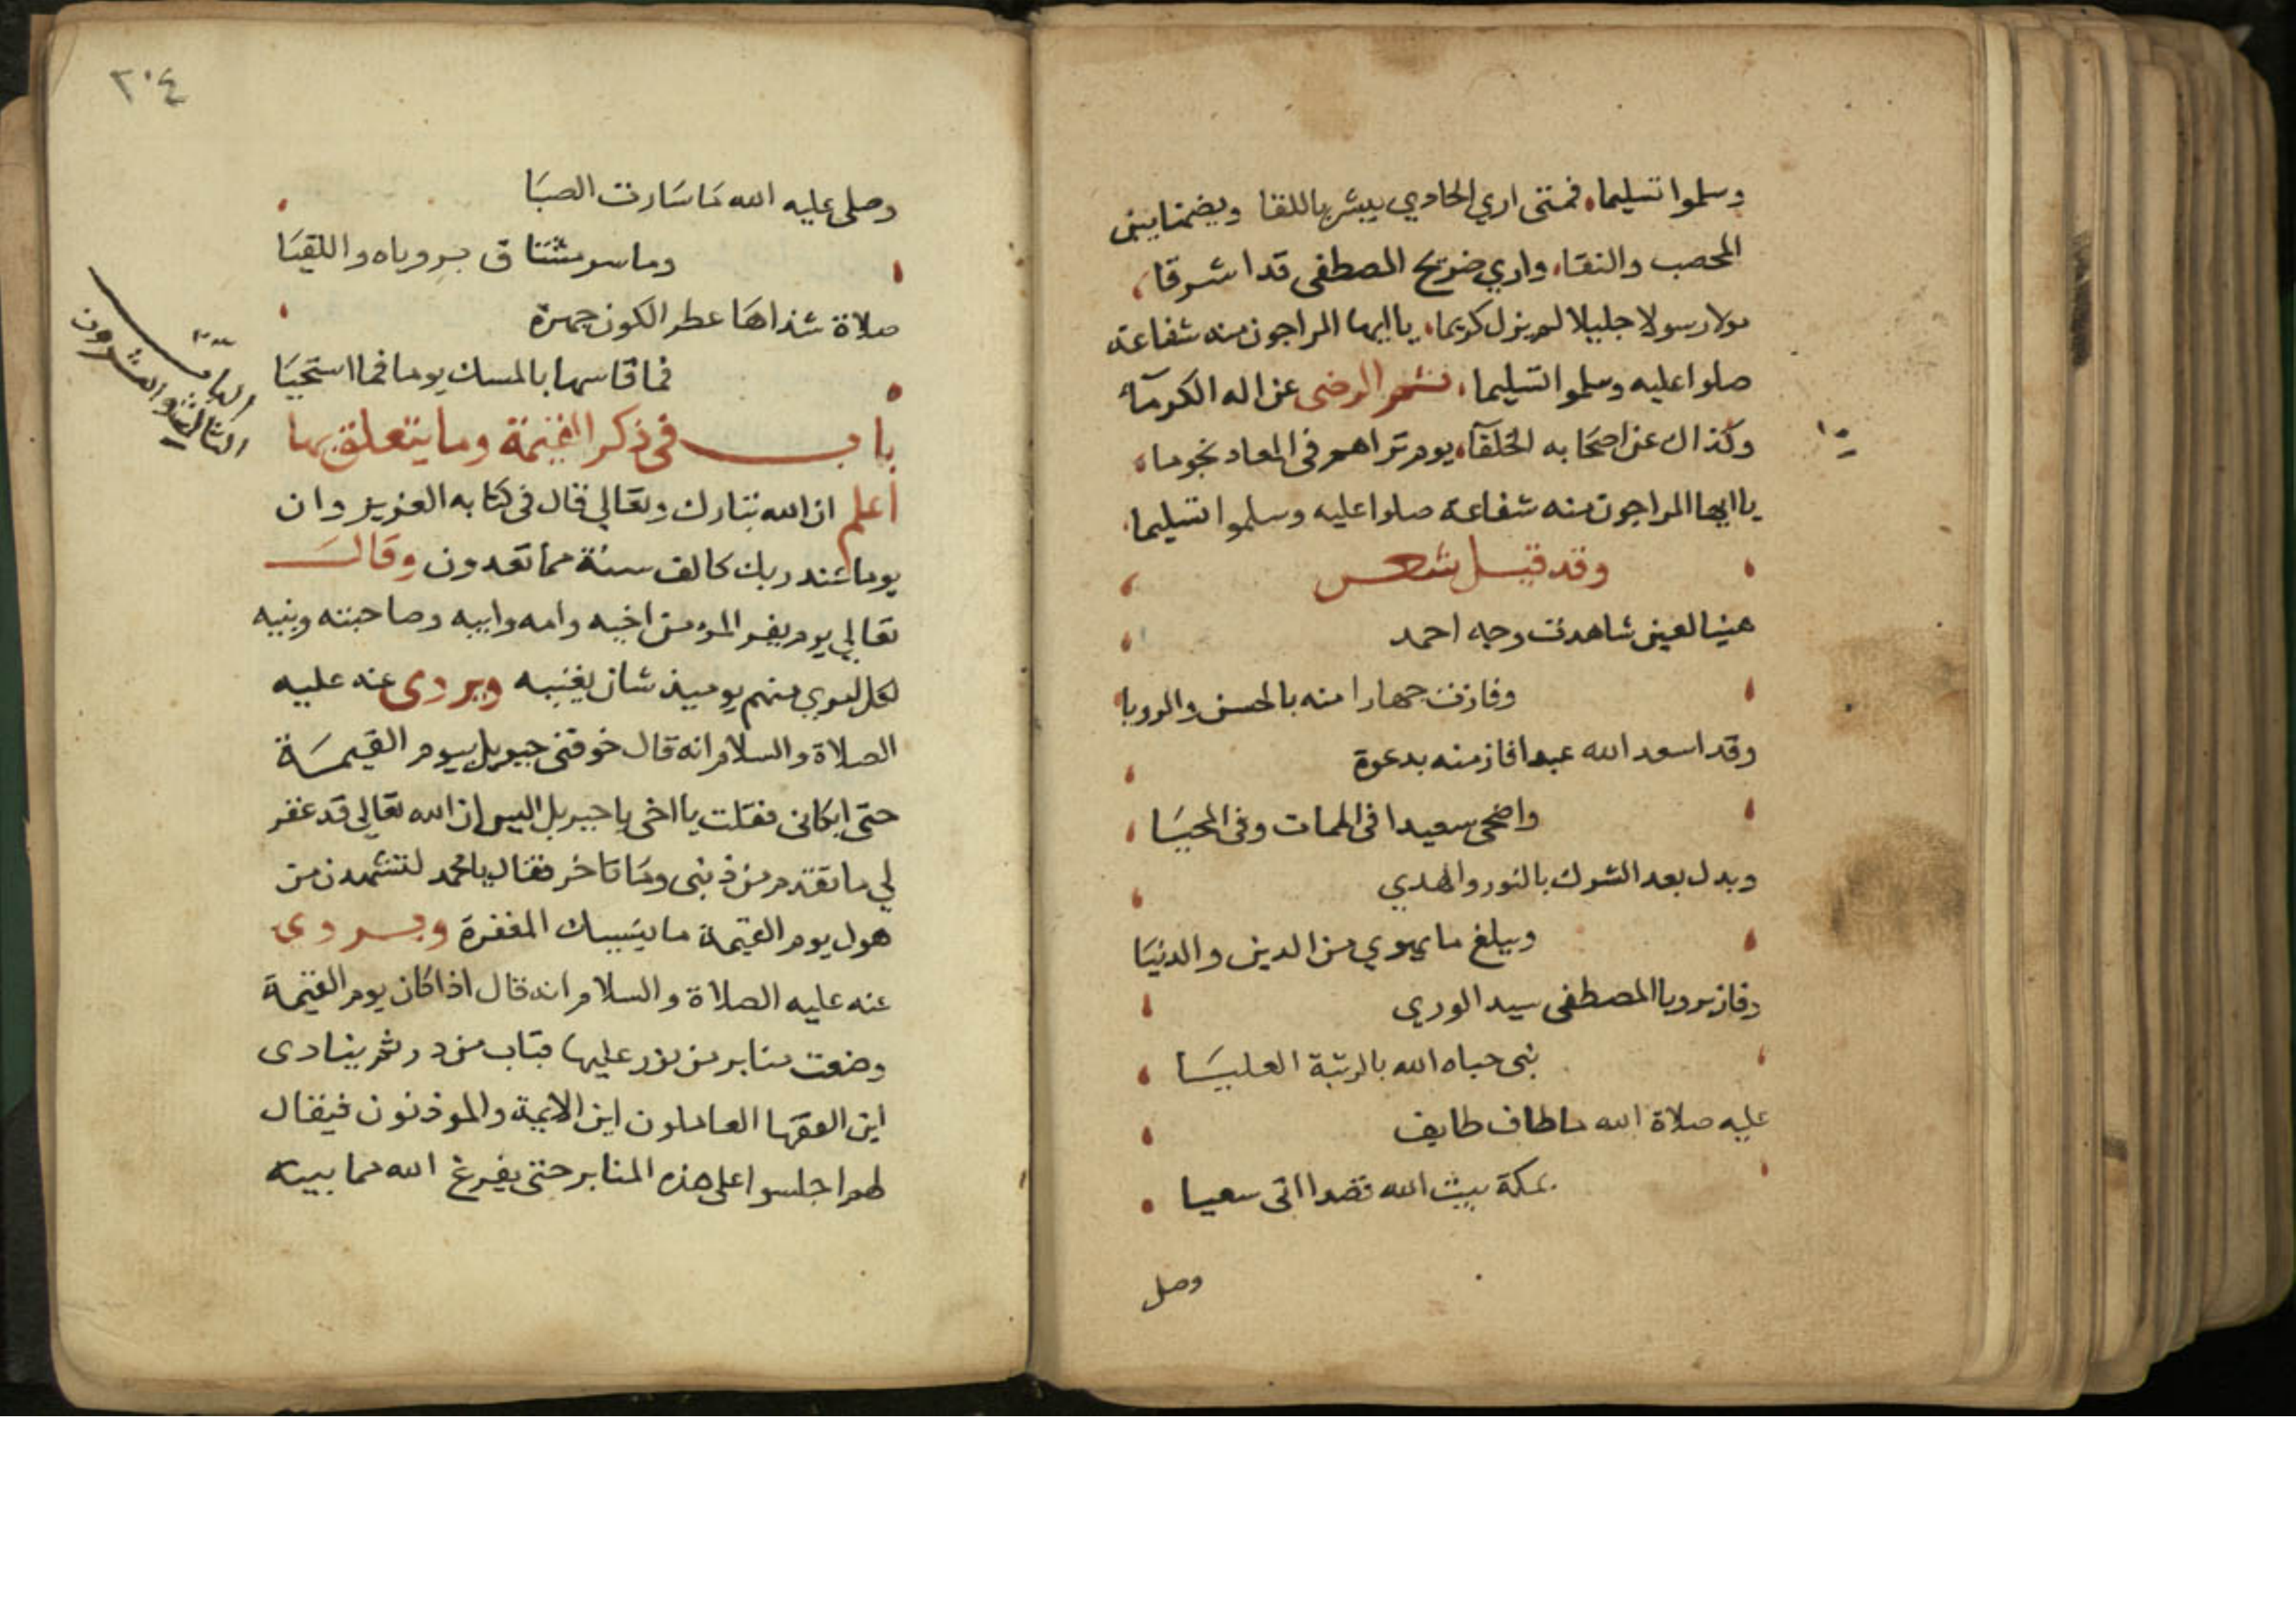 وسلموا تسليما، فمتى اري الحادي يبشر باللقا ويضمنا بين
المحصب والنقا، واري ضريح المصطفى قد اشرقا،
مولا رسولا جليلا لم يزل كريما، يا ايها الراجون منه شفاعة
صلوا عليه وسلموا تسليما، ثم الرضى عن اله الكرمآء
وكذاك عن اصحابه الخلفآ، يوم تراهم في المعاد نجوما،
يا ايها الراجون منه شفاعة صلوا عليه وسلموا تسليما،
وقد قيل شعر
هنيا لعين شاهدت وجه احمد
وفازت جهارا منه بالحسن والرويا
وقد اسعد الله عبدا فاز منه بدعوة
واضحى سعيدا في الممات وفي المحيا
وبدل بعد الشرك بالنور والهدي
ويبلغ ما يهوي من الدين والدنيا
وفاز برويا المصطفى سيد الوري
نبي حباه الله بالرتبة العليا
عليه صلاة الله ما طاف طايف
بمكة بيت الله قصدا اتى سعيا
وصل
٢٠٤
وصلى عليه الله ما سارت الصبا
وما سر مشتاق بروياه واللقيا
صلاة شذاها عطر الكون جهرة
فما قاسها بالمسك يوما فما استحيا
الباب
الثالث والعشرون
باب في ذكر القيمة وما يتعلق بها
اعلم ان الله تبارك وتعالي قال في كتابه العزيز وان
يوما عند ربك كالف سنة مما تعدون وقال
تعالي يوم يفر المرء من اخيه وامه وابيه وصاحبته وبنيه
لكل امري منهم يوميذ شان يغنيه ويروى عنه عليه
الصلاة والسلام انه قال خوفني جبريل بيوم القيمة
حتى ابكاني فقلت يا اخي يا جبريل اليس ان الله تعالي قد غفر
لي ما تقدم من ذنبي وما تاخر فقال يا محمد لتشهدن من
هول يوم القيمة ما ينسيك المغفرة ويروى
عنه عليه الصلاة والسلام انه قال اذا كان يوم القيمة
وضعت منابر من نور عليها قباب من در ثم ينادى
اين الفقها العاملون اين الايمة والموذنون فيقال
لهم اجلسوا على هذه المنابر حتى يفرغ الله مما بينه